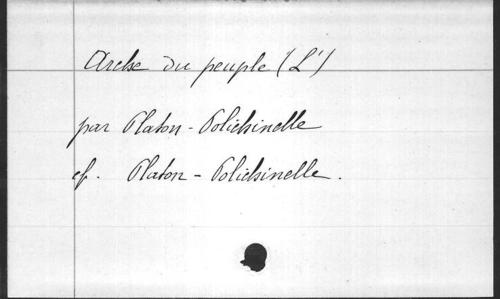 Arche du peuple (L')
par Platon-Polichinelle
cf. Platon-Polichinelle.